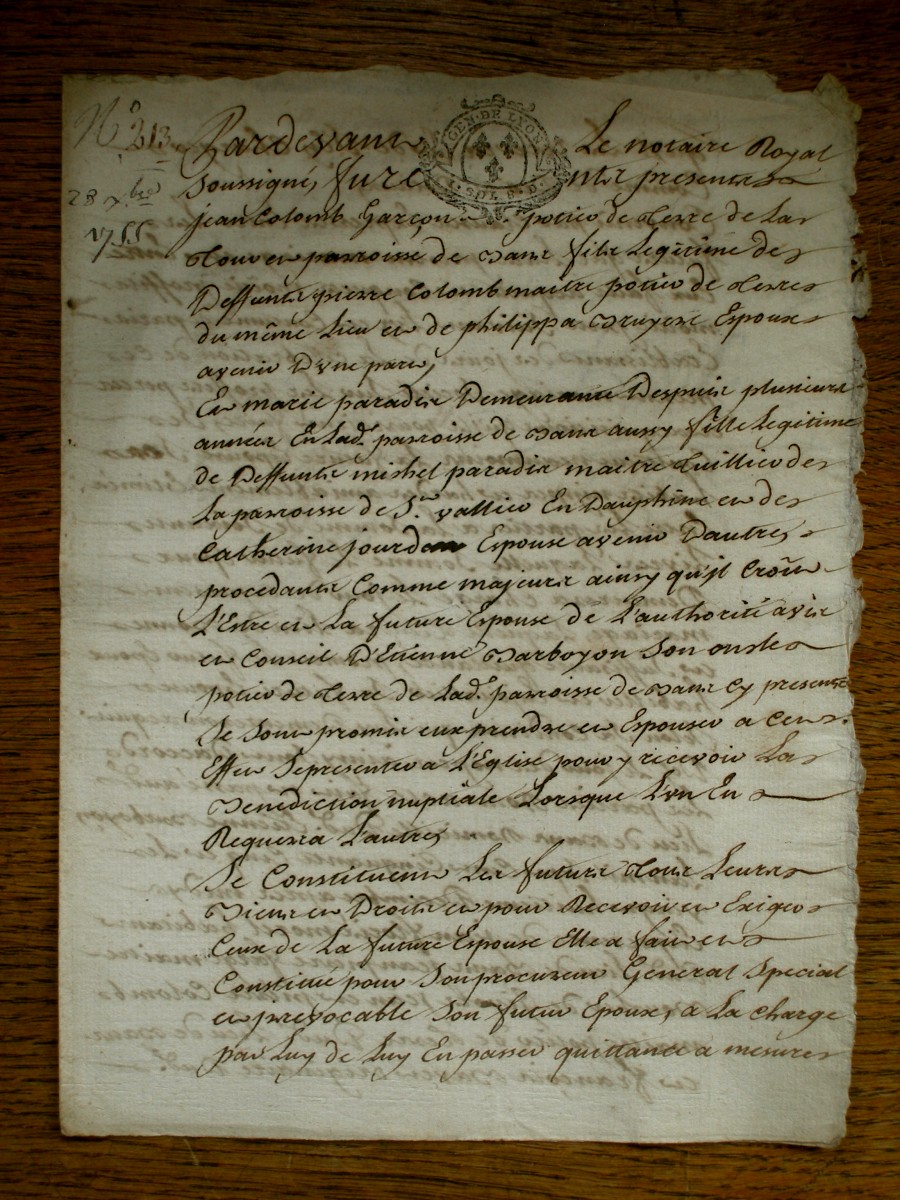 N° 213
28 xbre
1755
GEN. DE LYON
Pardevant Le notaire Royal
soussigné, furent presents
jean Colomb Garçon potier de Terre de La
Tour en parroisse de fils Legitime de
Deffunts pierre Colomb maitre potier de Terre
du même Lieu et de philippa Bruyere Epoux
avenir D'vne part,
Et marie paradis Demeurante Despuis plusieurs
années En Lad. parroisse de aussy fille Legitime
de Deffunts mishel paradis maitre Tuillier de
La parroisse de St. vallier En Dauphine et de
Catherine jourdan Epouse avenir D'autre,
procedants Comme majeurs ainsy qu'jl Croient
L'Estre et La future Epouse de L'authorité avis
et Conseil D'Etienne Barboyon son oncle
potier de Terre de Lad. parroisse de Cy present
Se sont promis eux prendre et Epouser a Cet
Effet Se presenter a L'Eglise pour y recevoir La
Benediction nuptiale Lorsque L'vn En
Requerra L'autre,
Se Constituent Les futurs Tous Leurs
Biens et Droits et pour Recevoir et Exiger
Ceux de La future Epouse Elle a fait et
Constitué pour Son procureur General Special
et jrrevocable Son futur Epoux, a La charge
par Luy de Luy En passer quittance a mesure